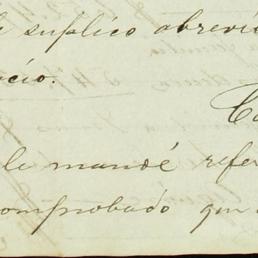 suplico abrevi
ocio.
le mandé refer
omprobado que